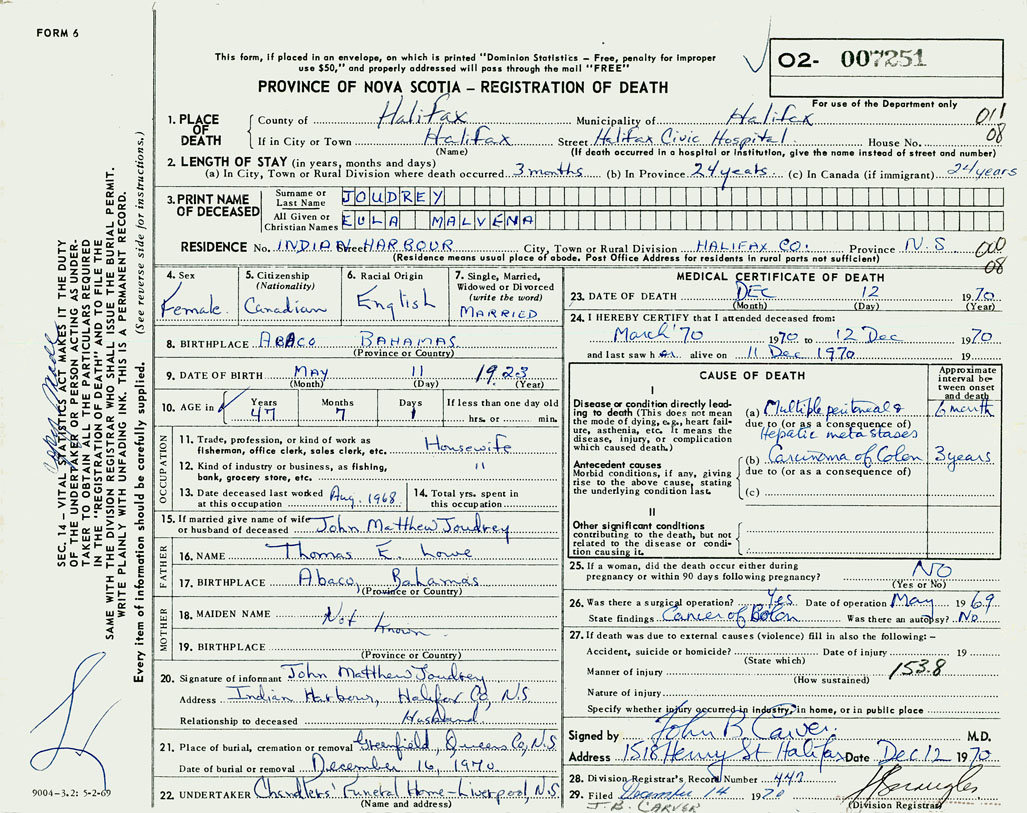 FORM 6
This form, if placed in an envelope, on which is printed "Dominion Statistics — Free, penalty for improper
use $50," and properly addressed will pass through the mail "FREE"
PROVINCE OF NOVA SCOTIA — REGISTRATION OF DEATH
O2- 007251
For use of the Department only
1. PLACE OF DEATH County of Halifax Municipality of Halifax 011
If in City or Town Halifax Street Halifax Civic Hospital House No. 08
(Name) (If death occurred in a hospital or institution, give the name instead of street and number)
2. LENGTH OF STAY (in years, months and days)
(a) In City, Town or Rural Division where death occurred 3 months (b) In Province 24 years (c) In Canada (if immigrant) 24 years
3. PRINT NAME OF DECEASED Surname or Last Name JOUDREY
All Given or Christian Names EULA MALVENA
RESIDENCE No. INDIAN Street HARBOUR City, Town or Rural Division HALIFAX CO. Province N.S
(Residence means usual place of abode. Post Office Address for residents in rural parts not sufficient) 08
4. Sex Female
5. Citizenship (Nationality) Canadian
6. Racial Origin English
7. Single, Married, Widowed or Divorced (write the word) MARRIED
8. BIRTHPLACE ABACO BAHAMAS
(Province or Country)
9. DATE OF BIRTH MAY 11 1923
(Month) (Day) (Year)
10. AGE in Years Months Days If less than one day old
47 7 1 hrs. or min.
OCCUPATION
11. Trade, profession, or kind of work as fisherman, office clerk, sales clerk, etc. Housewife
12. Kind of industry or business, as fishing, bank, grocery store, etc. "
13. Date deceased last worked at this occupation Aug. 1968
14. Total yrs. spent in this occupation
15. If married give name of wife or husband of deceased John Matthew Joudrey
FATHER
16. NAME Thomas E. Lowe
17. BIRTHPLACE Abaco, Bahamas
(Province or Country)
MOTHER
18. MAIDEN NAME Not Known
19. BIRTHPLACE
(Province or Country)
20. Signature of informant John Matthew Joudrey
Address Indian Harbour, Halifax Co, N.S
Relationship to deceased Husband
21. Place of burial, cremation or removal Greenfield, Queens Co, N.S
Date of burial or removal December 16, 1970
22. UNDERTAKER Chandlers' Funeral Home - Liverpool, N.S
(Name and address)
MEDICAL CERTIFICATE OF DEATH
23. DATE OF DEATH DEC 12 1970
(Month) (Day) (Year)
24. I HEREBY CERTIFY that I attended deceased from:
March '70 1970 to 12 Dec 1970
and last saw h er alive on 11 Dec 1970 19
CAUSE OF DEATH
Approximate interval between onset and death
I
Disease or condition directly leading to death (This does not mean the mode of dying, e.g., heart failure, asthenia, etc. It means the disease, injury, or complication which caused death.)
(a) Multiple peritoneal & 6 month
due to (or as a consequence of)
Hepatic metastases
Antecedent causes
Morbid conditions, if any, giving rise to the above cause, stating the underlying condition last.
(b) Carcinoma of Colon 3 years
due to (or as a consequence of)
(c)
II
Other significant conditions
contributing to the death, but not related to the disease or condition causing it.
25. If a woman, did the death occur either during
pregnancy or within 90 days following pregnancy? NO
(Yes or No)
26. Was there a surgical operation? Yes Date of operation May 1969
State findings Cancer of Colon Was there an autopsy? No
27. If death was due to external causes (violence) fill in also the following: —
Accident, suicide or homicide? Date of injury 19
(State which)
Manner of injury 153.8
(How sustained)
Nature of injury
Specify whether injury occurred in industry, in home, or in public place
Signed by John B. Carver M.D.
Address 1518 Henry St Halifax Date Dec 12 1970
28. Division Registrar's Record Number 442
29. Filed December 14 1970
J. B. CARVER (Division Registrar)
SEC. 14 — VITAL STATISTICS ACT MAKES IT THE DUTY
OF THE UNDERTAKER OR PERSON ACTING AS UNDER-
TAKER TO OBTAIN ALL THE PARTICULARS REQUIRED
IN THE "REGISTRATION OF DEATH" AND TO FILE THE
SAME WITH THE DIVISION REGISTRAR WHO SHALL ISSUE THE BURIAL PERMIT.
WRITE PLAINLY WITH UNFADING INK. THIS IS A PERMANENT RECORD.
Every item of information should be carefully supplied. (See reverse side for instructions.)
9004-3.2: 5-2-69